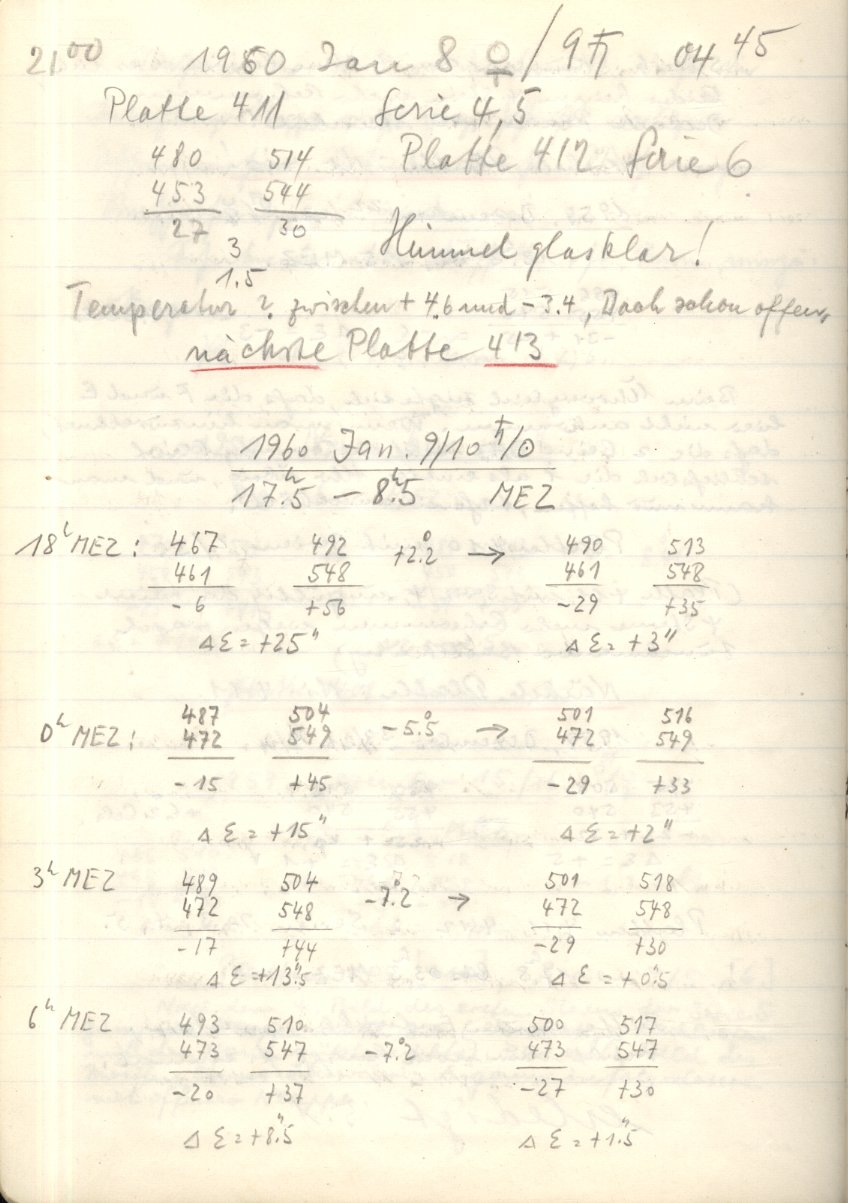 21 00 1960 Jan 8 ♀ / 9 ♄ 04 45
Platte 411 Serie 4,5
480 514 Platte 412 Serie 6
453 544
27 30
3 Himmel glasklar!
1.5
Temperatur ? zwischen + 4.6 und - 3.4, Dach schon offen,
nächste Platte 413
1960 Jan. 9/10 ♄/⊙
17.5h - 8.5h MEZ
18h MEZ: 467 492 +2°.2 → 490 513
461 548 461 548
-6 +56 -29 +35
Δ Ɛ = +25" Δ Ɛ = +3"
0h MEZ: 487 504 -5°.5 → 501 516
472 549 472 549
-15 +45 -29 +33
Δ Ɛ = +15" Δ Ɛ = +2"
3h MEZ 489 504 -7°.2 → 501 518
472 548 472 548
-17 +44 -29 +30
Δ Ɛ = +13".5 Δ Ɛ = +0".5
6h MEZ 493 510 -7°.2 500 517
473 547 473 547
-20 +37 -27 +30
Δ Ɛ = +8".5 Δ Ɛ = +1".5